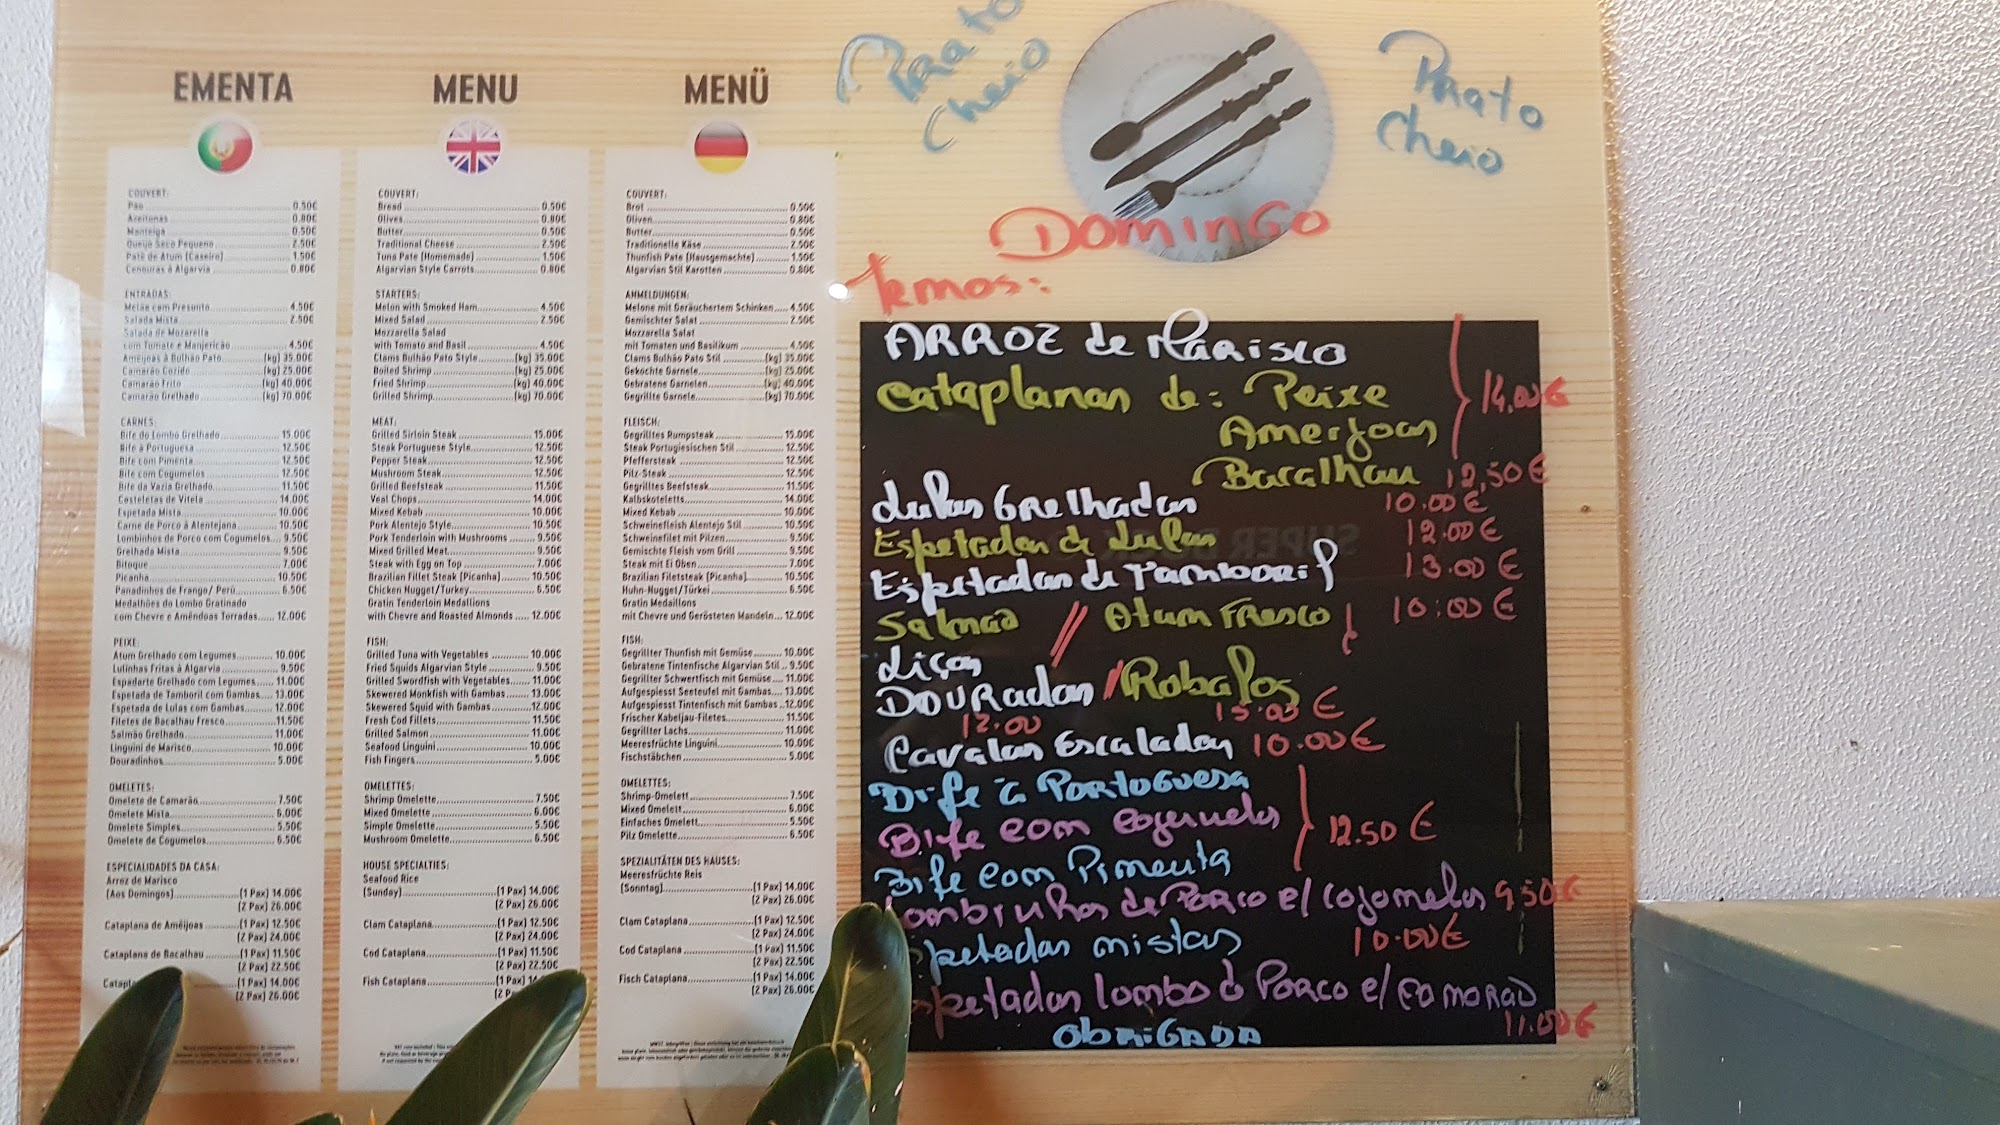 EMENTA
COUVERT:
Pão 0.50€
Azeitonas 0.80€
Manteiga 0.50€
Queijo Seco Pequeno 2.50€
Patê de Atum (Caseiro) 1.50€
Cenouras à Algarvia 0.80€
ENTRADAS:
Melão com Presunto 4.50€
Salada Mista 2.50€
Salada de Mozarella
com Tomate e Manjericão 4.50€
Ameijoas à Bulhão Pato (kg) 35.00€
Camarão Cozido (kg) 25.00€
Camarão Frito (kg) 40.00€
Camarão Grelhado (kg) 70.00€
CARNES:
Bife do Lombo Grelhado 15.00€
Bife à Portuguesa 12.50€
Bife com Pimenta 12.50€
Bife com Cogumelos 12.50€
Bife da Vazia Grelhado 11.50€
Costeletas de Vitela 14.00€
Espetada Mista 10.00€
Carne de Porco à Alentejana 10.50€
Lombinhos de Porco com Cogumelos 9.50€
Grelhada Mista 9.50€
Bitoque 7.00€
Picanha 10.50€
Panadinhos de Frango/ Perú 6.50€
Medalhões do Lombo Gratinado
com Chevre e Amêndoas Torradas 12.00€
PEIXE:
Atum Grelhado com Legumes 10.00€
Lulinhas fritas à Algarvia 9.50€
Espadarte Grelhado com Legumes 11.00€
Espetada de Tamboril com Gambas 13.00€
Espetada de Lulas com Gambas 12.00€
Filetes de Bacalhau Fresco 11.50€
Salmão Grelhado 11.00€
Linguini de Marisco 10.00€
Douradinhos 5.00€
OMELETES:
Omelete de Camarão 7.50€
Omelete Mista 6.00€
Omelete Simples 5.50€
Omelete de Cogumelos 6.50€
ESPECIALIDADES DA CASA:
Arroz de Marisco
(Aos Domingos) (1 Pax) 14.00€
(2 Pax) 26.00€
Cataplana de Amêijoas (1 Pax) 12.50€
(2 Pax) 24.00€
Cataplana de Bacalhau (1 Pax) 11.50€
(2 Pax) 22.50€
(1 Pax) 14.00€
(2 Pax) 26.00€
MENU
COUVERT:
Bread 0.50€
Olives 0.80€
Butter 0.50€
Traditional Cheese 2.50€
Tuna Pate (Homemade) 1.50€
Algarvian Style Carrots 0.80€
STARTERS:
Melon with Smoked Ham 4.50€
Mixed Salad 2.50€
Mozzarella Salad
with Tomato and Basil 4.50€
Clams Bulhão Pato Style (kg) 35.00€
Boited Shrimp (kg) 25.00€
Fried Shrimp (kg) 40.00€
Grilled Shrimp (kg) 70.00€
MEAT:
Grilled Sirloin Steak 15.00€
Steak Portuguese Style 12.50€
Pepper Steak 12.50€
Mushroom Steak 12.50€
Grilled Beefsteak 11.50€
Veal Chops 14.00€
Mixed Kebab 10.00€
Pork Alentejo Style 10.50€
Pork Tenderloin with Mushrooms 9.50€
Mixed Grilled Meat 9.50€
Steak with Egg on Top 7.00€
Brazilian Fillet Steak (Picanha) 10.50€
Chicken Nugget/Turkey 6.50€
Gratin Tenderloin Medallions
with Chevre and Roasted Almonds 12.00€
FISH:
Grilled Tuna with Vegetables 10.00€
Fried Squids Algarvian Style 9.50€
Grilled Swordfish with Vegetables 11.00€
Skewered Monkfish with Gambas 13.00€
Skewered Squid with Gambas 12.00€
Fresh Cod Fillets 11.50€
Grilled Salmon 11.00€
Seafood Linguini 10.00€
Fish Fingers 5.00€
OMELETTES:
Shrimp Omelette 7.50€
Mixed Omelette 6.00€
Simple Omelette 5.50€
Mushroom Omelette 6.50€
HOUSE SPECIALTIES:
Seafood Rice
(Sunday) (1 Pax) 14.00€
(2 Pax) 26.00€
Clam Cataplana (1 Pax) 12.50€
(2 Pax) 24.00€
Cod Cataplana (1 Pax) 11.50€
(2 Pax) 22.50€
Fish Cataplana (1 Pax)
(2 Pax)
MENÜ
COUVERT:
Brot 0.50€
Oliven 0.80€
Butter 0.50€
Traditionelle Käse 2.50€
Thunfish Pate (Hausgemachte) 1.50€
Algarvian Stil Karotten 0.80€
ANMELDUNGEN:
Melone mit Geräuchertem Schinken 4.50€
Gemischter Salat 2.50€
Mozzarella Salat
mit Tomaten und Basilikum 4.50€
Clams Bulhão Pato Stil (kg) 35.00€
Gekochte Garnele (kg) 25.00€
Gebratene Garnelen (kg) 40.00€
Gegrillte Garnele (kg) 70.00€
FLEISCH:
Gegrilltes Rumpsteak 15.00€
Steak Portugiesischen Stil 12.50€
Pfeffersteak 12.50€
Pilz-Steak 12.50€
Gegrilltes Beefsteak 11.50€
Kalbskoteletts 14.00€
Mixed Kebab 10.00€
Schweinefleish Alentejo Stil 10.50€
Schweinefilet mit Pilzen 9.50€
Gemischte Fleish vom Grill 9.50€
Steak mit Ei Oben 7.00€
Brazilian Filetsteak (Picanha) 10.50€
Huhn-Nugget/Türkei 6.50€
Gratin Medaillons
mit Chevre und Gerösteten Mandeln 12.00€
FISH:
Gegrillter Thunfish mit Gemüse 10.00€
Gebratene Tintenfische Algarvian Stil 9.50€
Gegrillter Schwertfisch mit Gemüse 11.00€
Aufgespiesst Seeteufel mit Gambas 13.00€
Aufgespiesst Tintenfisch mit Gambas 12.00€
Frischer Kabeljau-Filetes 11.50€
Gegrillter Lachs 11.00€
Meeresfrüchte Linguini 10.00€
Fischstäbchen 5.00€
OMELETTES:
Shrimp-Omelett 7.50€
Mixed Omelett 6.00€
Einfaches Omelett 5.50€
Pilz Omelette 6.50€
SPEZIALITÄTEN DES HAUSES:
Meeresfrüchte Reis
(Sonntag) (1 Pax) 14.00€
(2 Pax) 26.00€
Clam Cataplana (1 Pax) 12.50€
(2 Pax) 24.00€
Cod Cataplana (1 Pax) 11.50€
(2 Pax) 22.50€
Fisch Cataplana (1 Pax) 14.00€
(2 Pax) 26.00€
Prato
Cheio
Prato
Cheio
DOMINGO
Temos:
ARROZ de Marisco
Cataplanas de: Peixe 14.00€
Ameijoas
Bacalhau 12,50€
Lulas Grelhadas 10.00€
Espetadas de Lulas 12.00€
Espetadas de Tamboril 13.00€
Salmão // Atum Fresco 10.00€
Liças
DOURadas // Robalos
12.00 15.00€
Cavalas Escaladas 10.00€
Bife à Portuguesa
Bife com Cogumelos 12.50€
Bife com Pimenta
Lombinhos de Porco c/ Cogumelos 9.50€
Espetadas mistas 10.00€
Espetadas lombo d Porco c/ camarão
11.00€
OBRIGADA